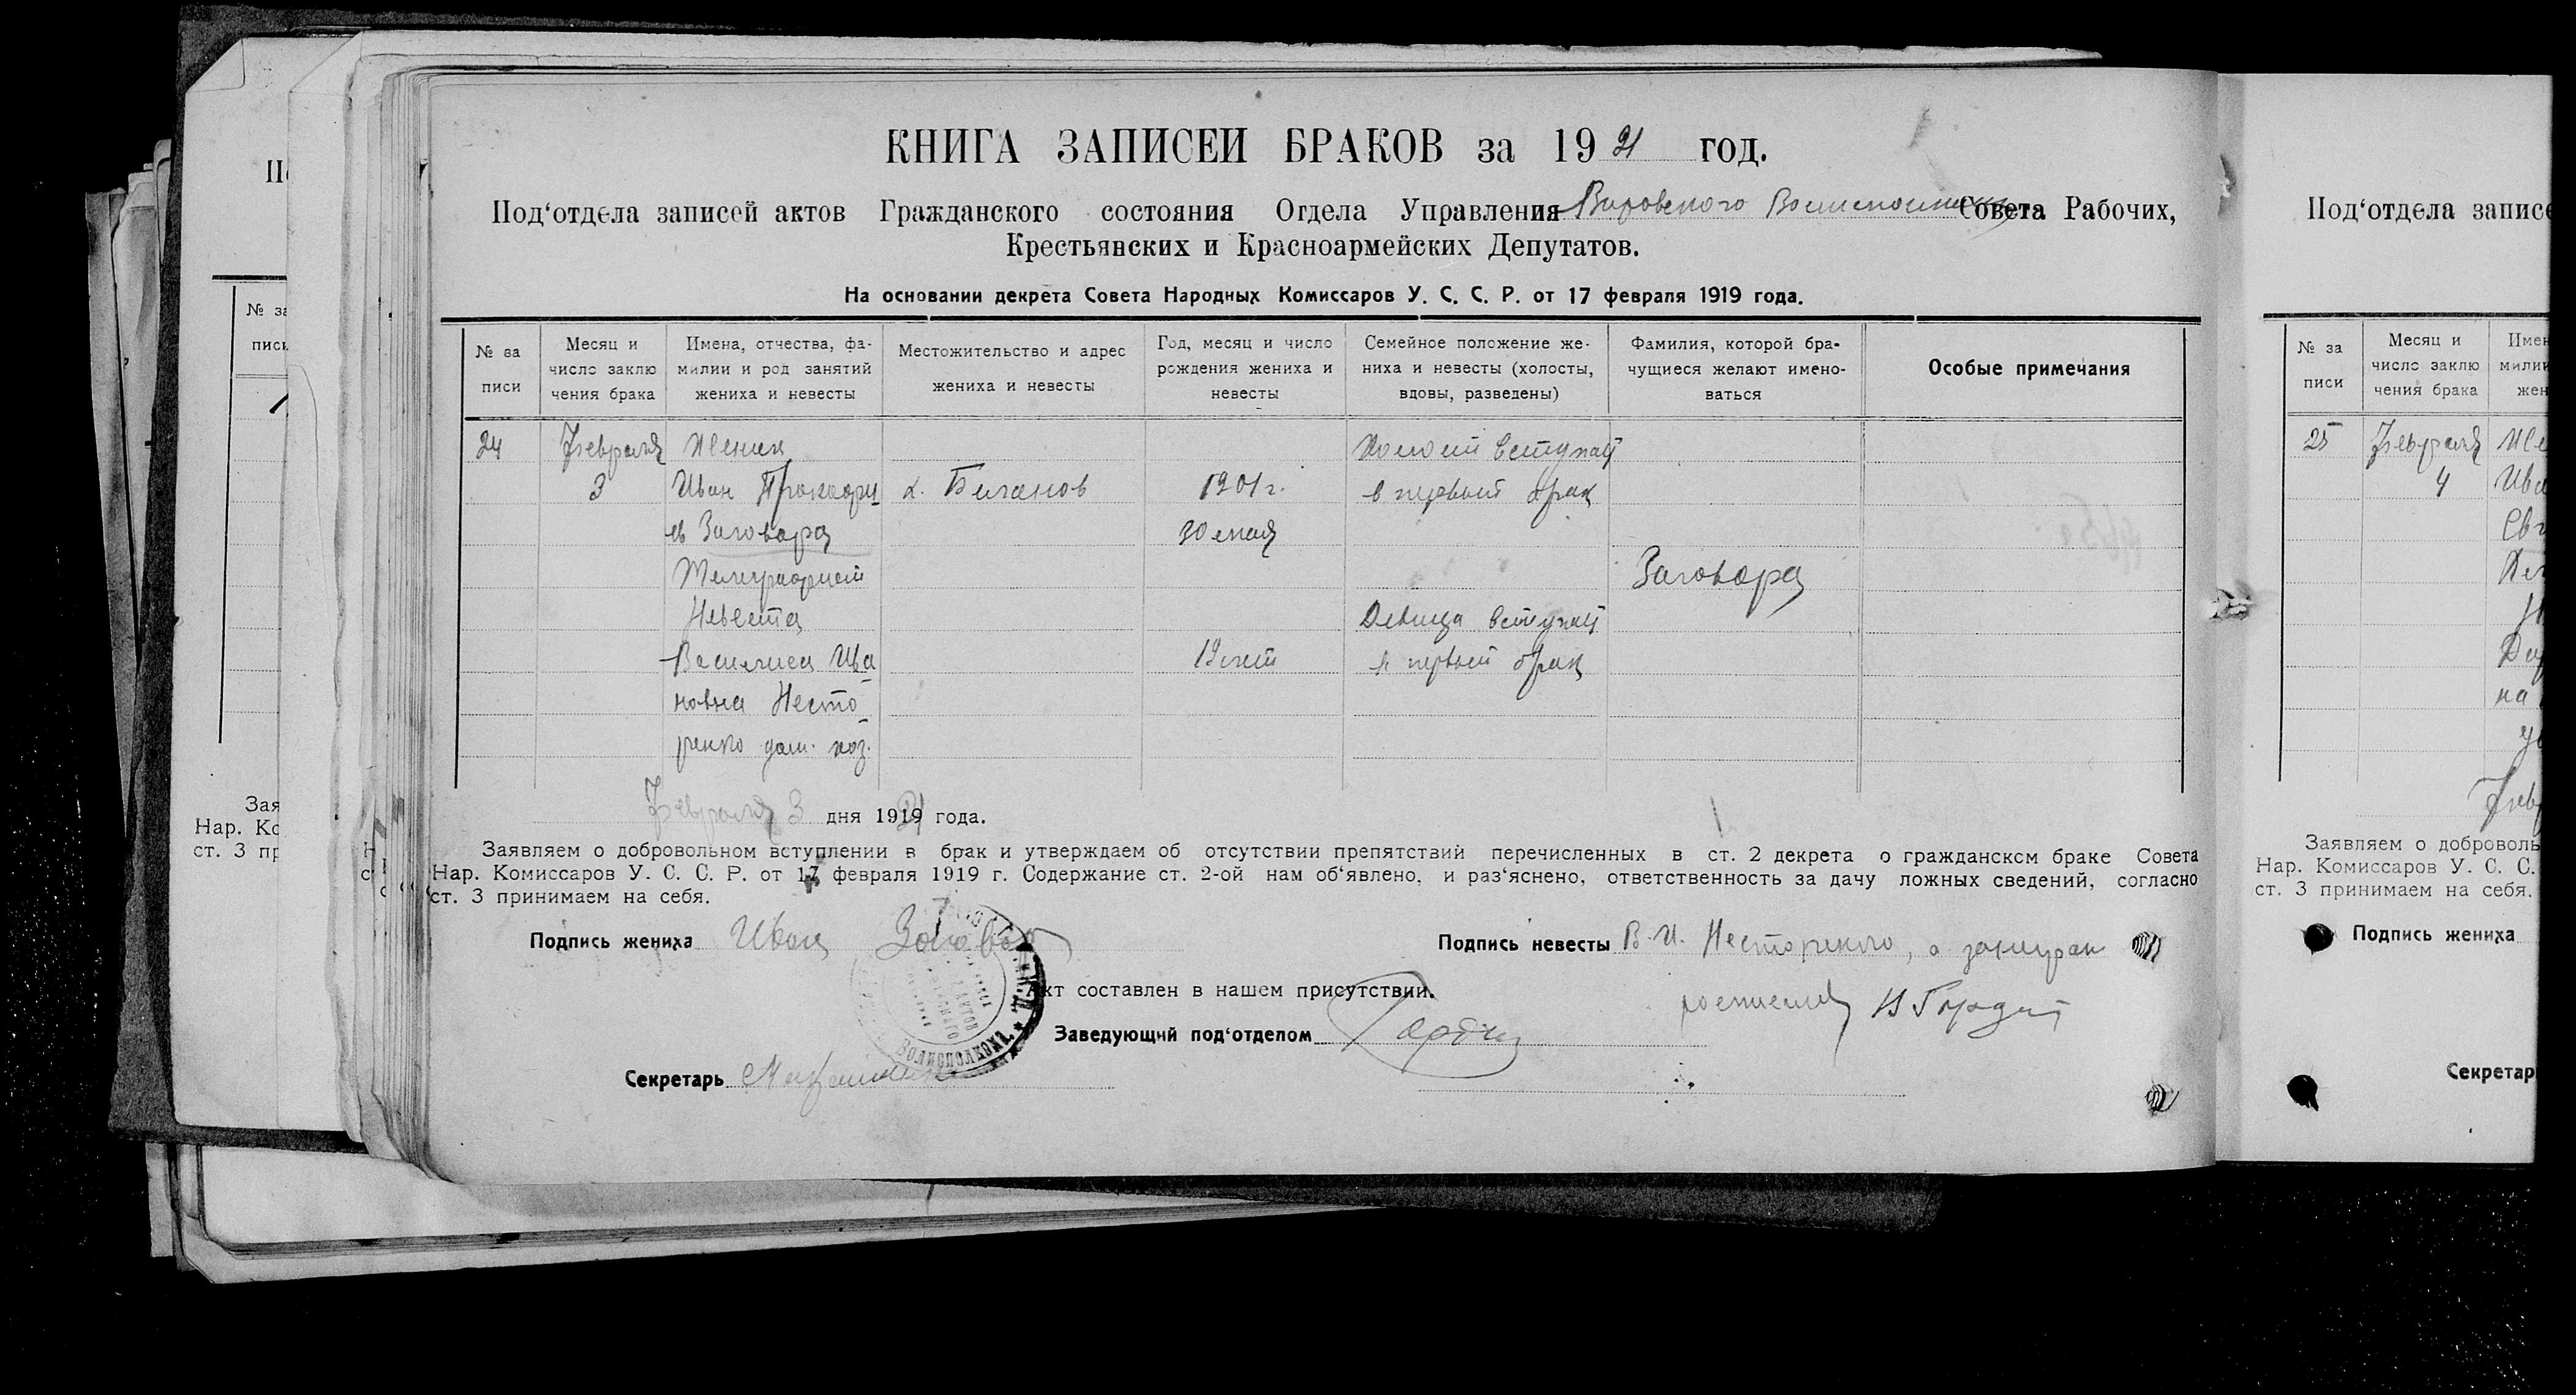 КНИГА ЗАПИСЕЙ БРАКОВ за 1921 год.
Под‘отдела записей актов Гражданского состояния Отдела Управления Вировского Волисполкома Совета Рабочих,
Крестьянских и Красноармейских Депутатов.
На основании декрета Совета Народных Комиссаров У. С. С. Р. от 17 февраля 1919 года.
№ за писи
Месяц и число заклю чения брака
Имена, отчества, фа- милии и род занятий жениха и невесты
Местожительство и адрес жениха и невесты
Год, месяц и число рождения жениха и невесты
Семейное положение же- ниха и невесты (холосты, вдовы, разведены)
Фамилия, которой бра- чущиеся желают имено- ваться
Особые примечания
24 Февраля Жених Холост вступает
3 Иван Прокофи х. Биланов 1901 г. в первый брак
ев Заговора 30 мая
Телеграфист Заговора
Невеста Девица вступает
Василиса Ива 19 лет в первый брак
новна Несто
ренко дом. хоз.
Февраля 3 дня 1921 года.
Заявляем о добровольном вступлении в брак и утверждаем об отсутствии препятствий перечисленных в ст. 2 декрета о гражданском браке Совета
Нар. Комиссаров У. С. С. Р. от 17 февраля 1919 г. Содержание ст. 2-ой нам об‘явлено, и раз‘яснено, ответственность за дачу ложных сведений, согласно
ст. 3 принимаем на себя.
Подпись жениха Иван Заговора
Подпись невесты В. И. Несторенко, а за неграм
росписался
Акт составлен в нашем присутствии.
Заведующий под‘отделом
Секретарь
ВОЛИСПОЛКОМА
Под‘отдела записе
№ за писи
Месяц и число заклю чения брака
25 Февраля
4
Заявляем о доброволь
Нар. Комиссаров У. С. С.
ст. 3 принимаем на себя.
Подпись жениха
Секретар
№ за
писи
Зая
Нар. Ко
ст. 3 пр